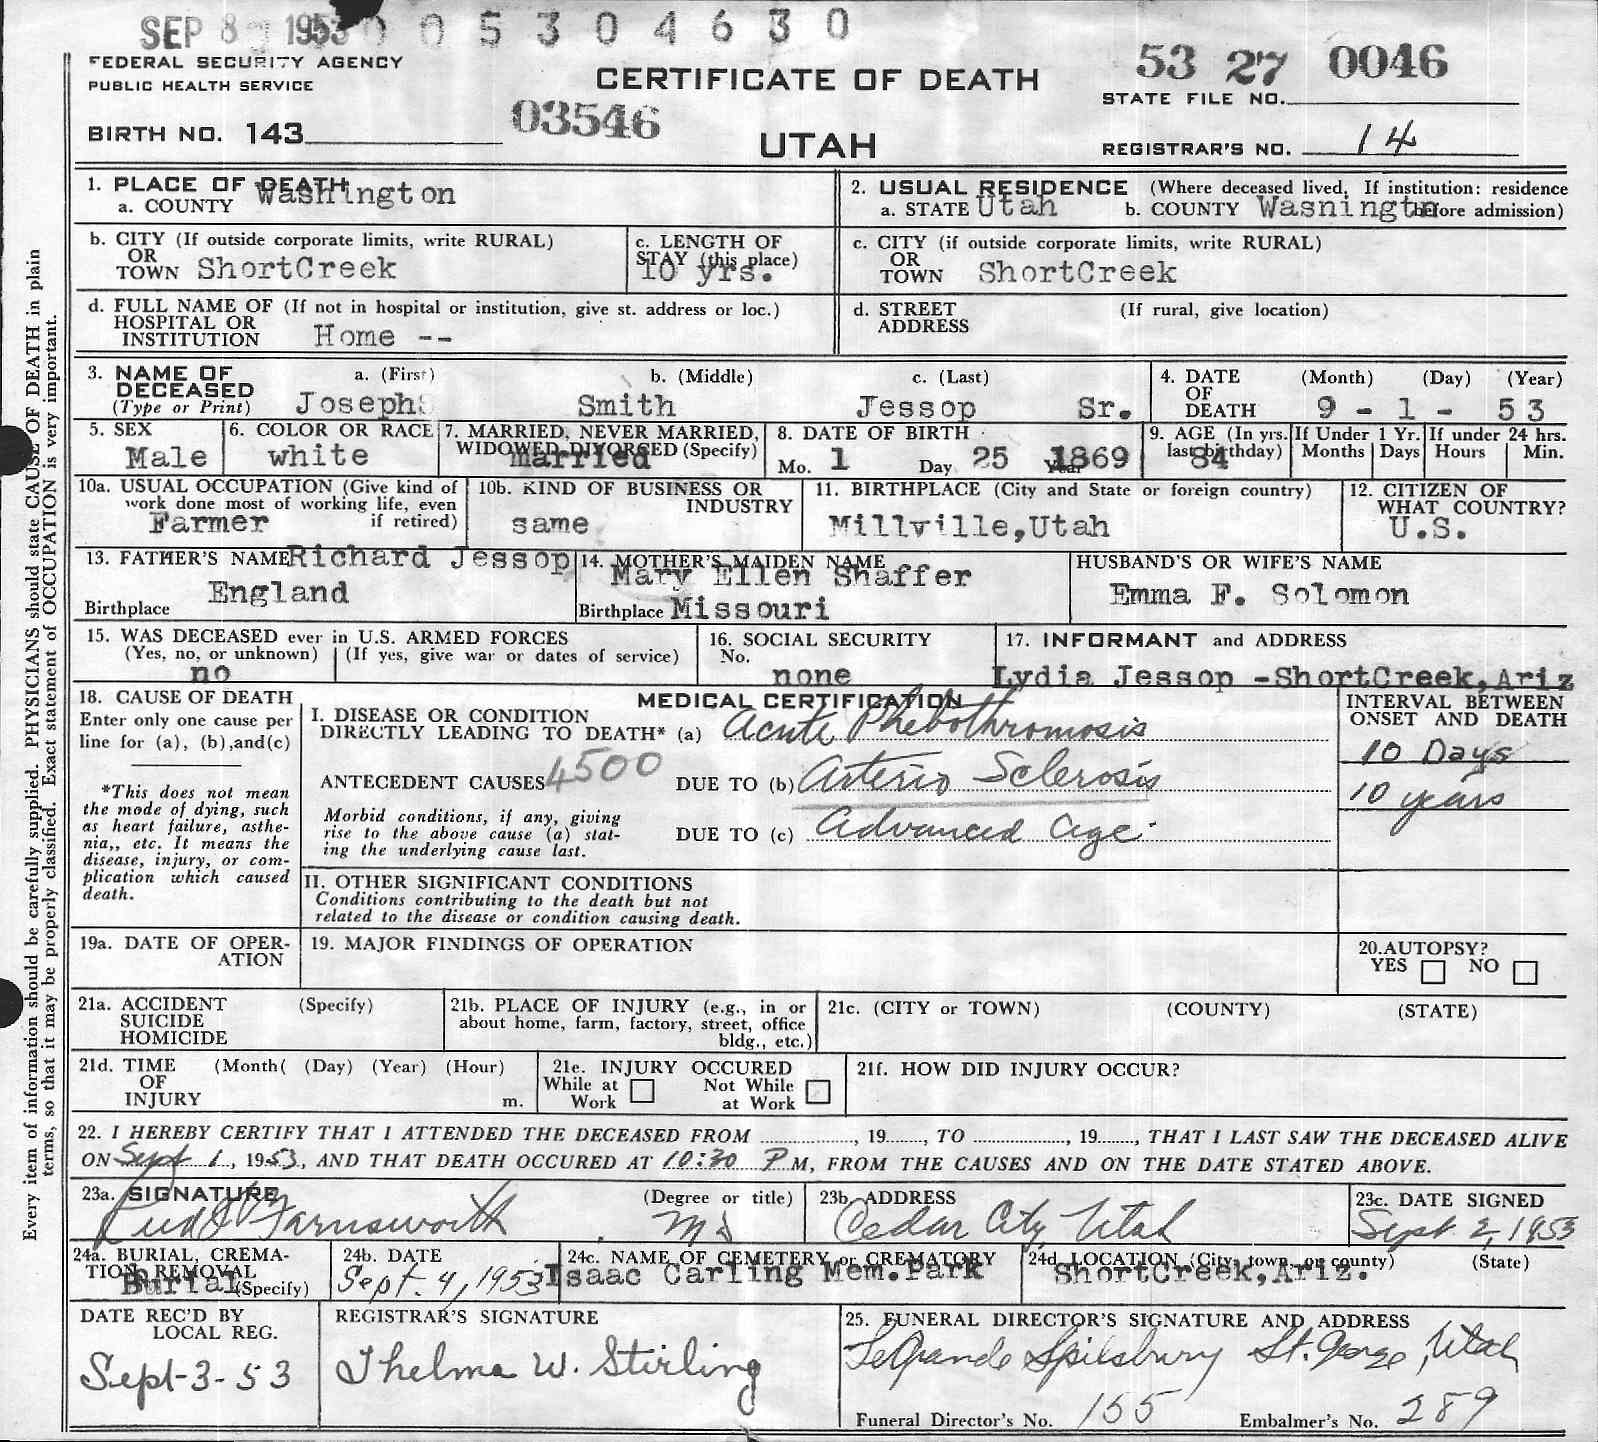 SEP 8 1953 0 0 5 3 0 4 6 3 0
FEDERAL SECURITY AGENCY
PUBLIC HEALTH SERVICE
CERTIFICATE OF DEATH
53 27 0046
STATE FILE NO.
BIRTH NO. 143
03546
UTAH
REGISTRAR'S NO. 14
1. PLACE OF DEATH
a. COUNTY Washington
2. USUAL RESIDENCE (Where deceased lived. If institution: residence before admission)
a. STATE Utah b. COUNTY Wasningtn
b. CITY (If outside corporate limits, write RURAL)
OR
TOWN ShortCreek
c. LENGTH OF
STAY (this place)
10 yrs.
c. CITY (if outside corporate limits, write RURAL)
OR
TOWN ShortCreek
d. FULL NAME OF (If not in hospital or institution, give st. address or loc.)
HOSPITAL OR
INSTITUTION Home --
d. STREET (If rural, give location)
ADDRESS
3. NAME OF DECEASED
(Type or Print)
a. (First) b. (Middle) c. (Last)
Joseph Smith Jessop Sr.
4. DATE OF DEATH
(Month) (Day) (Year)
9 - 1 - 53
5. SEX
Male
6. COLOR OR RACE
white
7. MARRIED, NEVER MARRIED,
WIDOWED, DIVORCED (Specify)
married
8. DATE OF BIRTH
Mo. 1 Day 25 Year 1869
9. AGE (In yrs.
last birthday)
84
If Under 1 Yr.
Months Days
If under 24 hrs.
Hours Min.
10a. USUAL OCCUPATION (Give kind of
work done most of working life, even
if retired)
Farmer
10b. KIND OF BUSINESS OR
INDUSTRY
same
11. BIRTHPLACE (City and State or foreign country)
Millville,Utah
12. CITIZEN OF
WHAT COUNTRY?
U.S.
13. FATHER'S NAME Richard Jessop
Birthplace England
14. MOTHER'S MAIDEN NAME
Mary Ellen Shaffer
Birthplace Missouri
HUSBAND'S OR WIFE'S NAME
Emma F. Solomon
15. WAS DECEASED ever in U.S. ARMED FORCES
(Yes, no, or unknown) (If yes, give war or dates of service)
no
16. SOCIAL SECURITY
No.
none
17. INFORMANT and ADDRESS
Lydia Jessop -ShortCreek,Ariz
18. CAUSE OF DEATH
Enter only one cause per
line for (a), (b),and(c)
*This does not mean
the mode of dying, such
as heart failure, asthe-
nia,, etc. It means the
disease, injury, or com-
plication which caused
death.
MEDICAL CERTIFICATION
I. DISEASE OR CONDITION
DIRECTLY LEADING TO DEATH* (a) Acute Phebothromosis
ANTECEDENT CAUSES 4500 DUE TO (b) Arterio Sclerosis
Morbid conditions, if any, giving
rise to the above cause (a) stat-
ing the underlying cause last.
DUE TO (c) Advanced Age
INTERVAL BETWEEN
ONSET AND DEATH
10 Days
10 years
II. OTHER SIGNIFICANT CONDITIONS
Conditions contributing to the death but not
related to the disease or condition causing death.
19a. DATE OF OPER-
ATION
19. MAJOR FINDINGS OF OPERATION
20.AUTOPSY?
YES NO
21a. ACCIDENT (Specify)
SUICIDE
HOMICIDE
21b. PLACE OF INJURY (e.g., in or
about home, farm, factory, street, office
bldg., etc.)
21c. (CITY or TOWN) (COUNTY) (STATE)
21d. TIME (Month( (Day) (Year) (Hour)
OF
INJURY m.
21e. INJURY OCCURED
While at Work Not While at Work
21f. HOW DID INJURY OCCUR?
22. I HEREBY CERTIFY THAT I ATTENDED THE DECEASED FROM , 19 , TO , 19 , THAT I LAST SAW THE DECEASED ALIVE
ON Sept 1, 1953, AND THAT DEATH OCCURED AT 10:30 P M, FROM THE CAUSES AND ON THE DATE STATED ABOVE.
23a. SIGNATURE (Degree or title)
Farnsworth MD
23b. ADDRESS
Cedar City, Utah
23c. DATE SIGNED
Sept 2, 1953
24a. BURIAL, CREMA-
TION, REMOVAL
(Specify)
Burial
24b. DATE
Sept. 4, 1953
24c. NAME OF CEMETERY or CREMATORY
Isaac Carling Mem.Park
24d. LOCATION (City, town, or county) (State)
ShortCreek,Ariz.
DATE REC'D BY
LOCAL REG.
Sept-3-53
REGISTRAR'S SIGNATURE
Thelma W. Stirling
25. FUNERAL DIRECTOR'S SIGNATURE AND ADDRESS
LeGrande Spilsbury St. George, Utah
Funeral Director's No. 155 Embalmer's No. 289
Every item of information should be carefully supplied. PHYSICIANS should state CAUSE OF DEATH in plain
terms, so that it may be properly classified. Exact statement of OCCUPATION is very important.